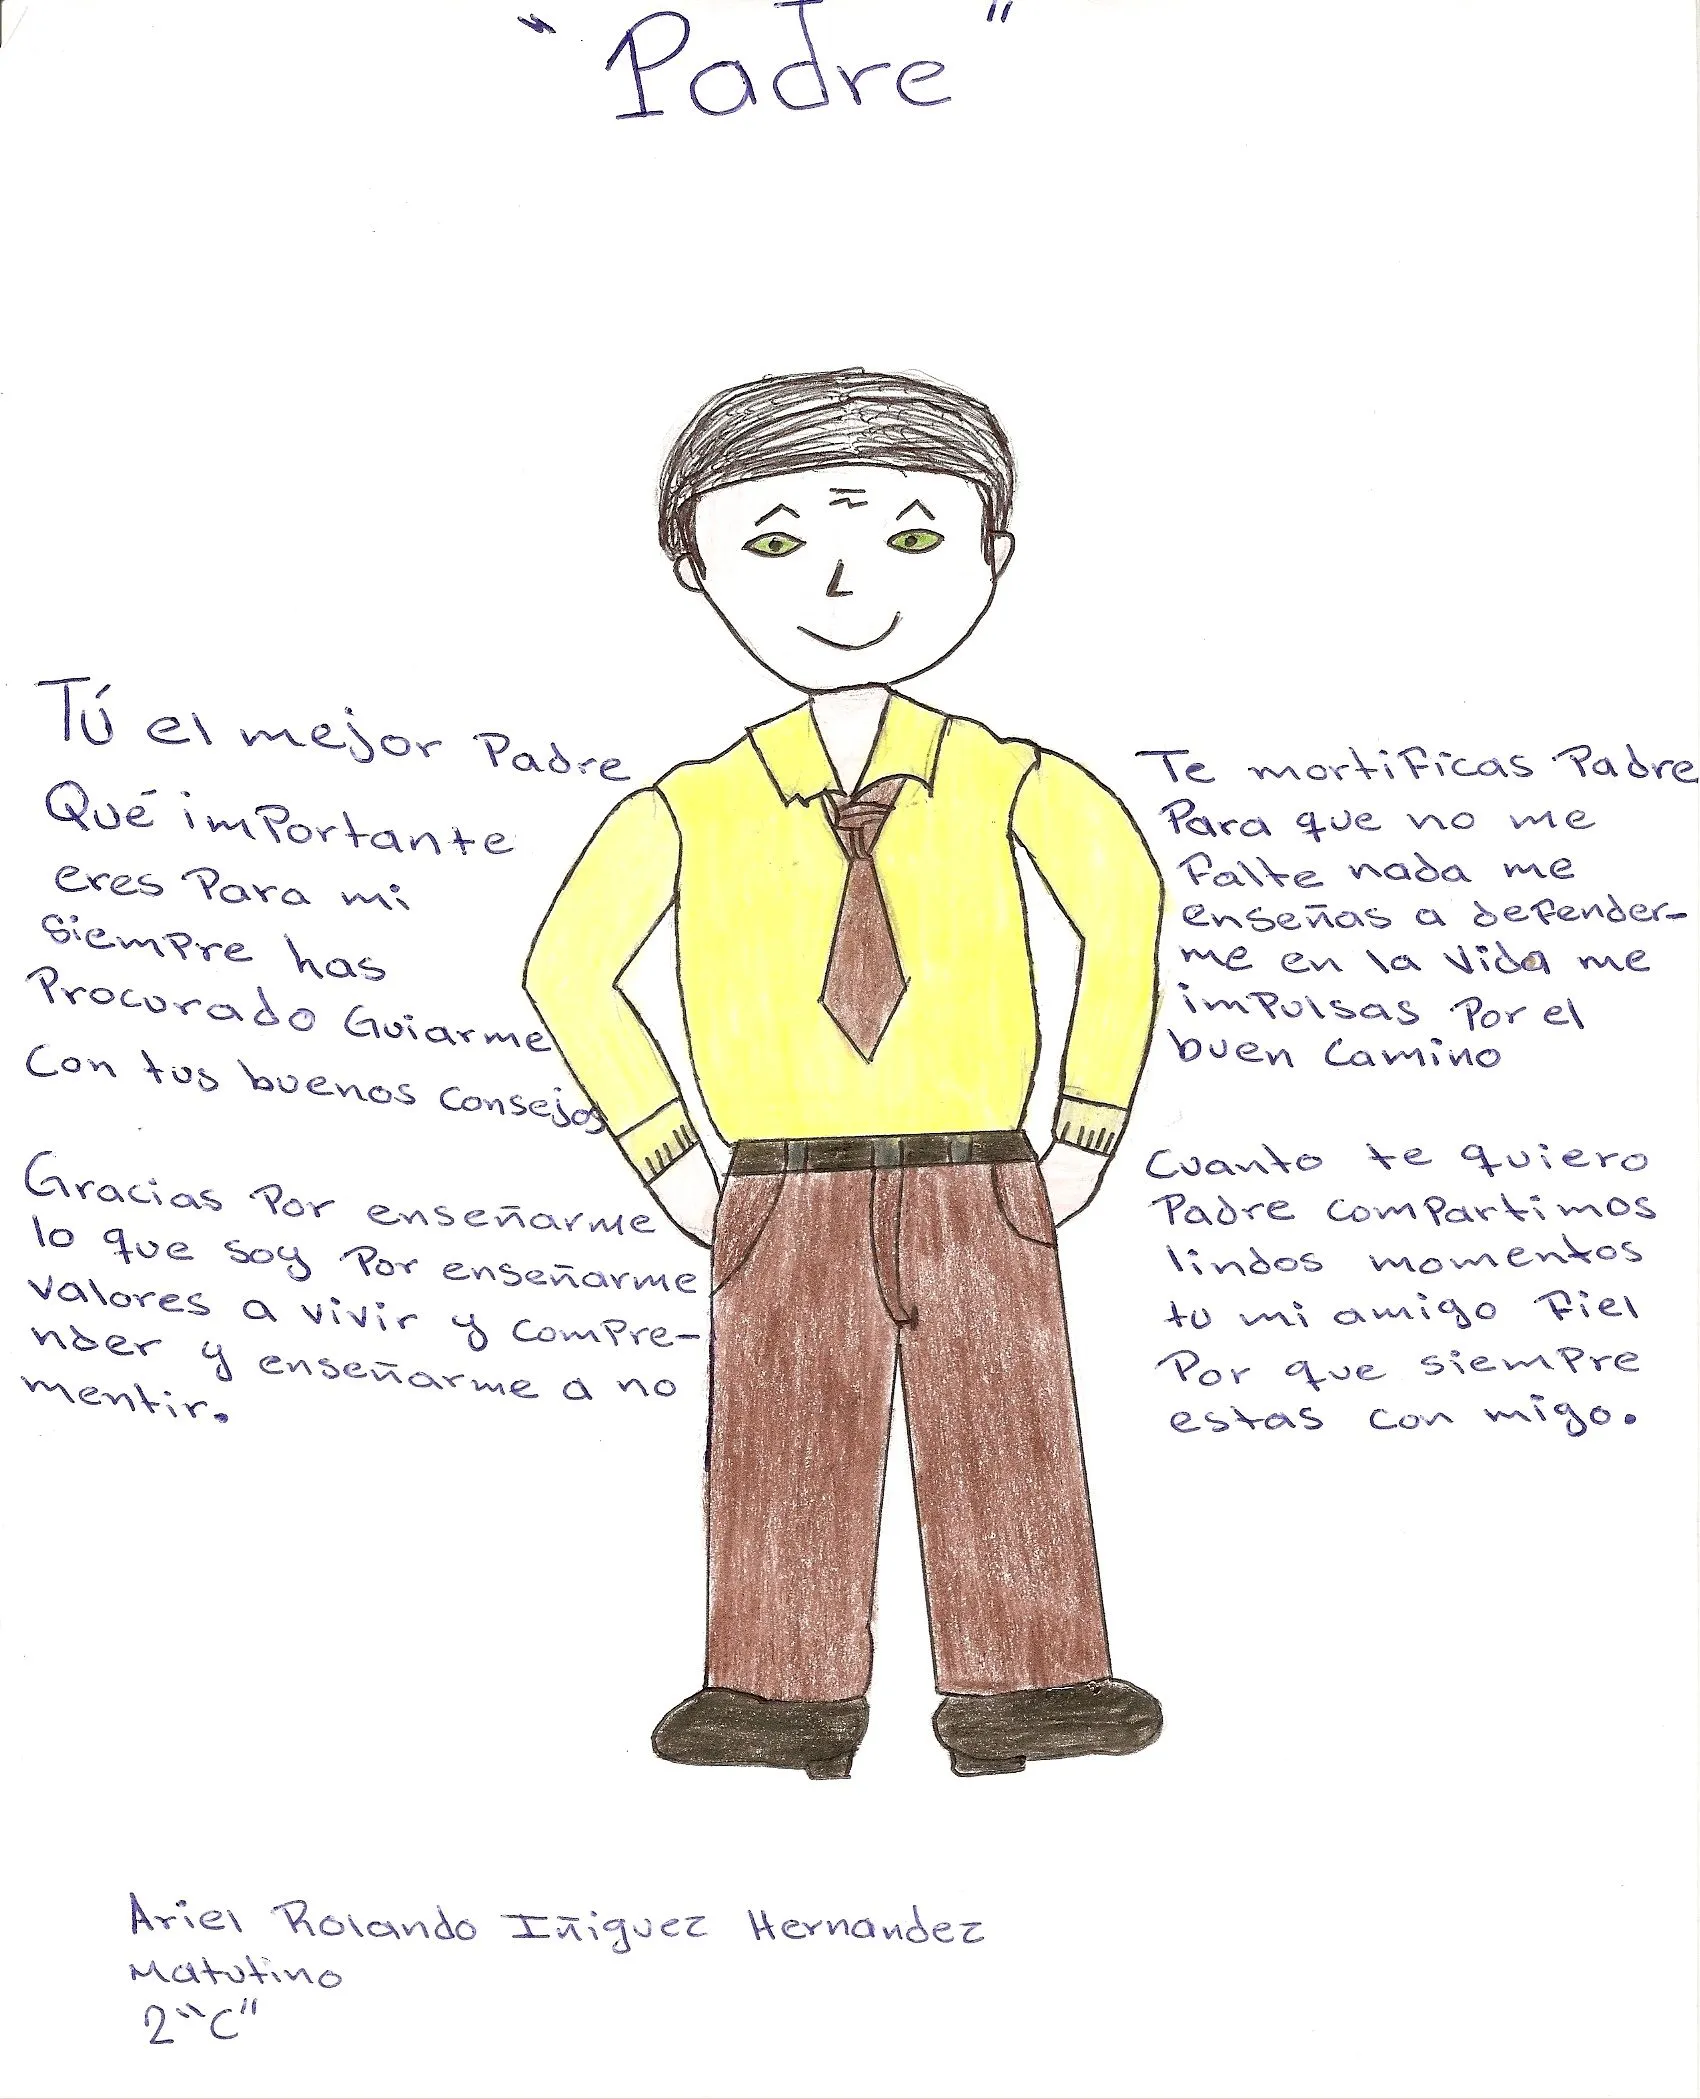 "Padre"
Tú el mejor Padre
Qué importante
eres Para mi
siempre has
Procurado Guiarme
Con tus buenos consejos
Gracias Por enseñarme
lo que soy Por enseñarme
valores a vivir y compre-
nder y enseñarme a no
mentir.
Te mortificas Padre
Para que no me
Falte nada me
enseñas a defender-
me en la vida me
impulsas Por el
buen Camino
Cuanto te quiero
Padre compartimos
lindos momentos
tu mi amigo Fiel
Por que siempre
estas con migo.
Ariel Rolando Iñiguez Hernandez
Matutino
2 "C"